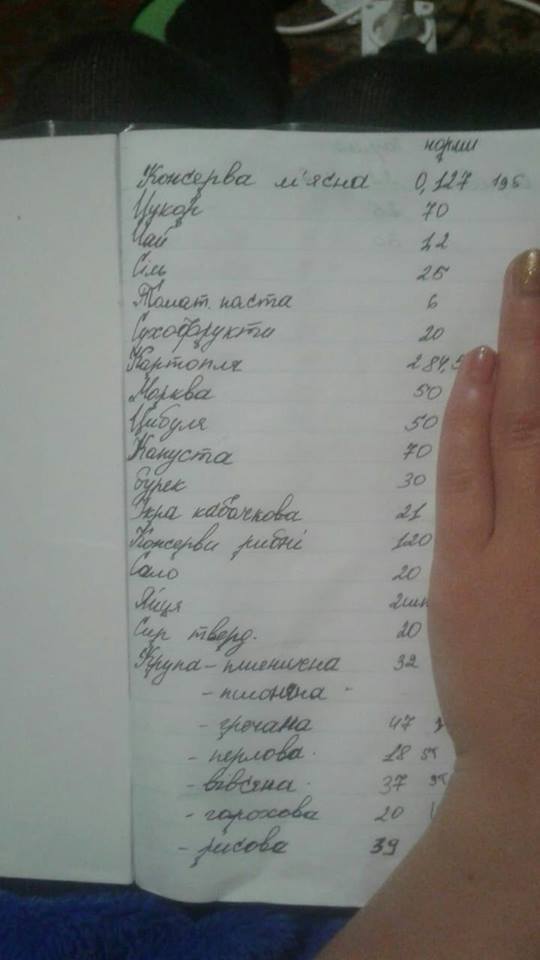 норми
Консерва м'ясна 0,127 195
Цукор 70
Чай 1,2
Сіль 25
Томат. паста 6
Сухофрукти 20
Картопля 284,5
Морква 50
Цибуля 50
Капуста 70
Бурек 30
Ікра кабачкова 21
Консерви рибні 120
Сало 20
Яйця 2шт
Сир тверд. 20
Крупа - пшенична 32
- пшоняна -
- гречана 47
- перлова. 18
- вівсяна. 37
- горохова 20
- рисова 39